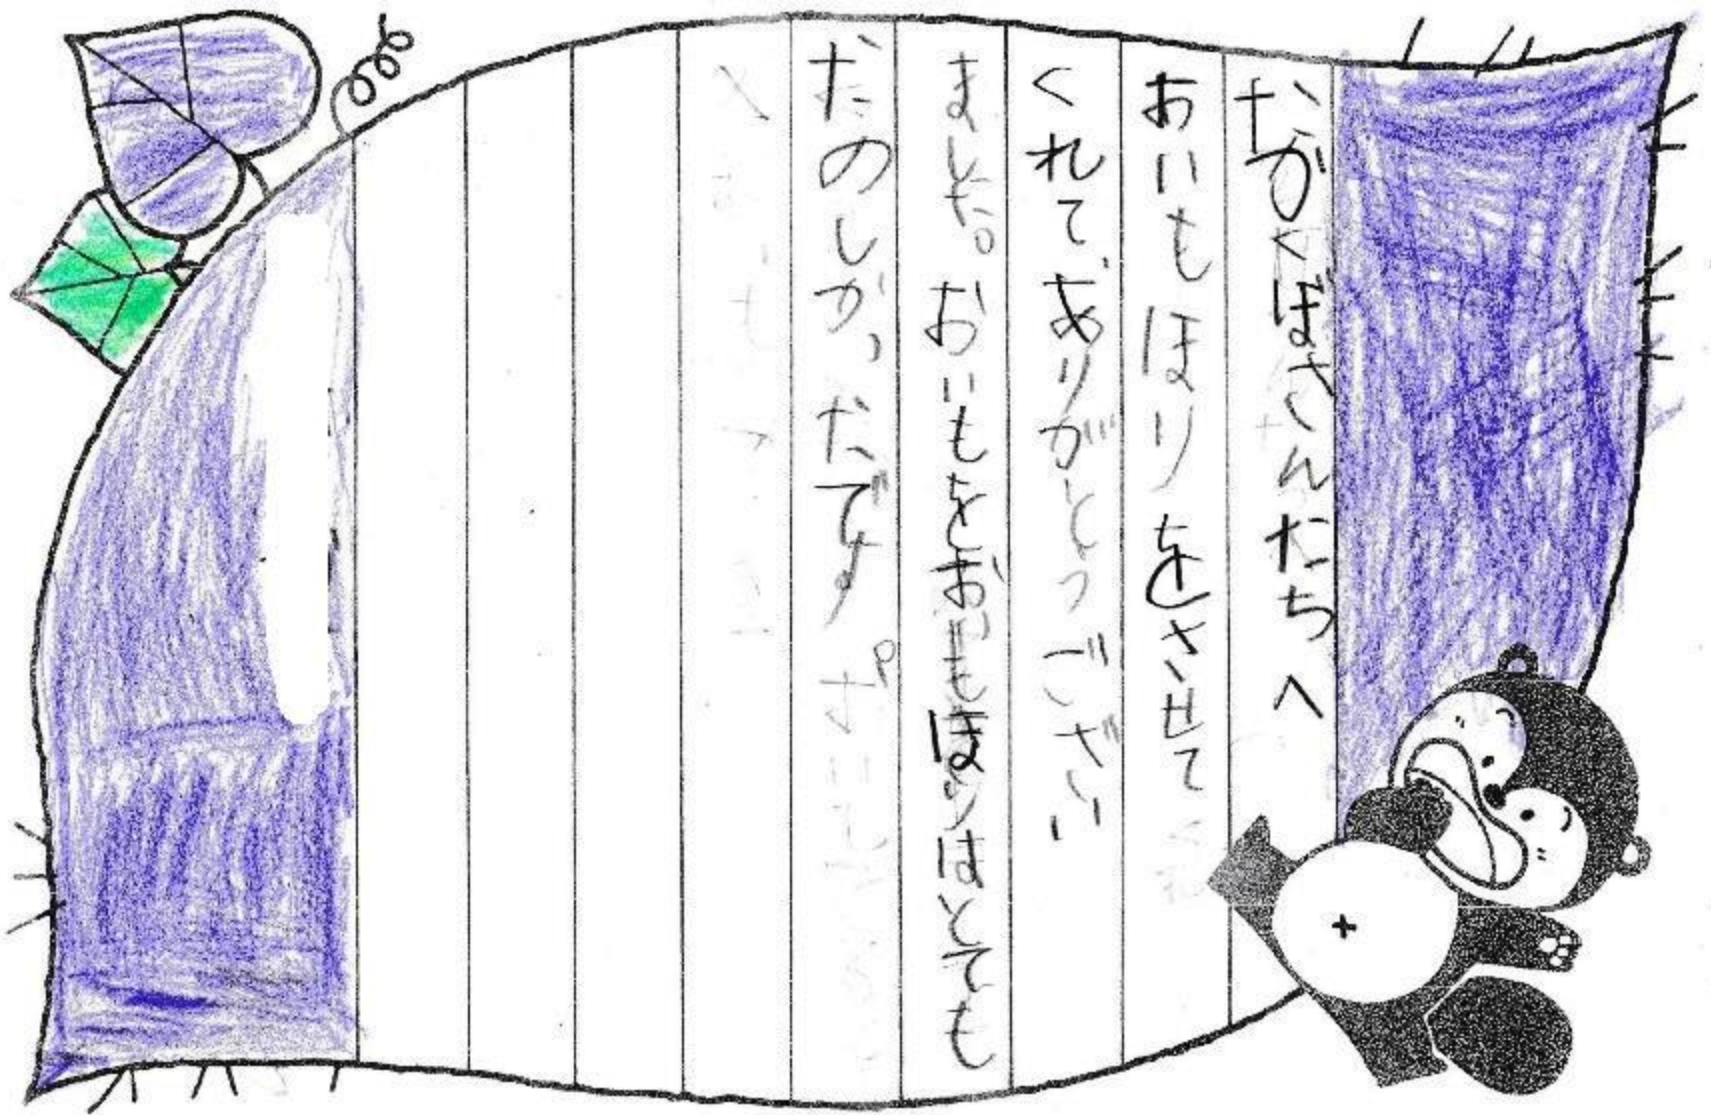 ながくぼさんたちへ
おいもほりをさせて
くれてありがとうござい
ました。おいもをほるのはとても
たのしかったです